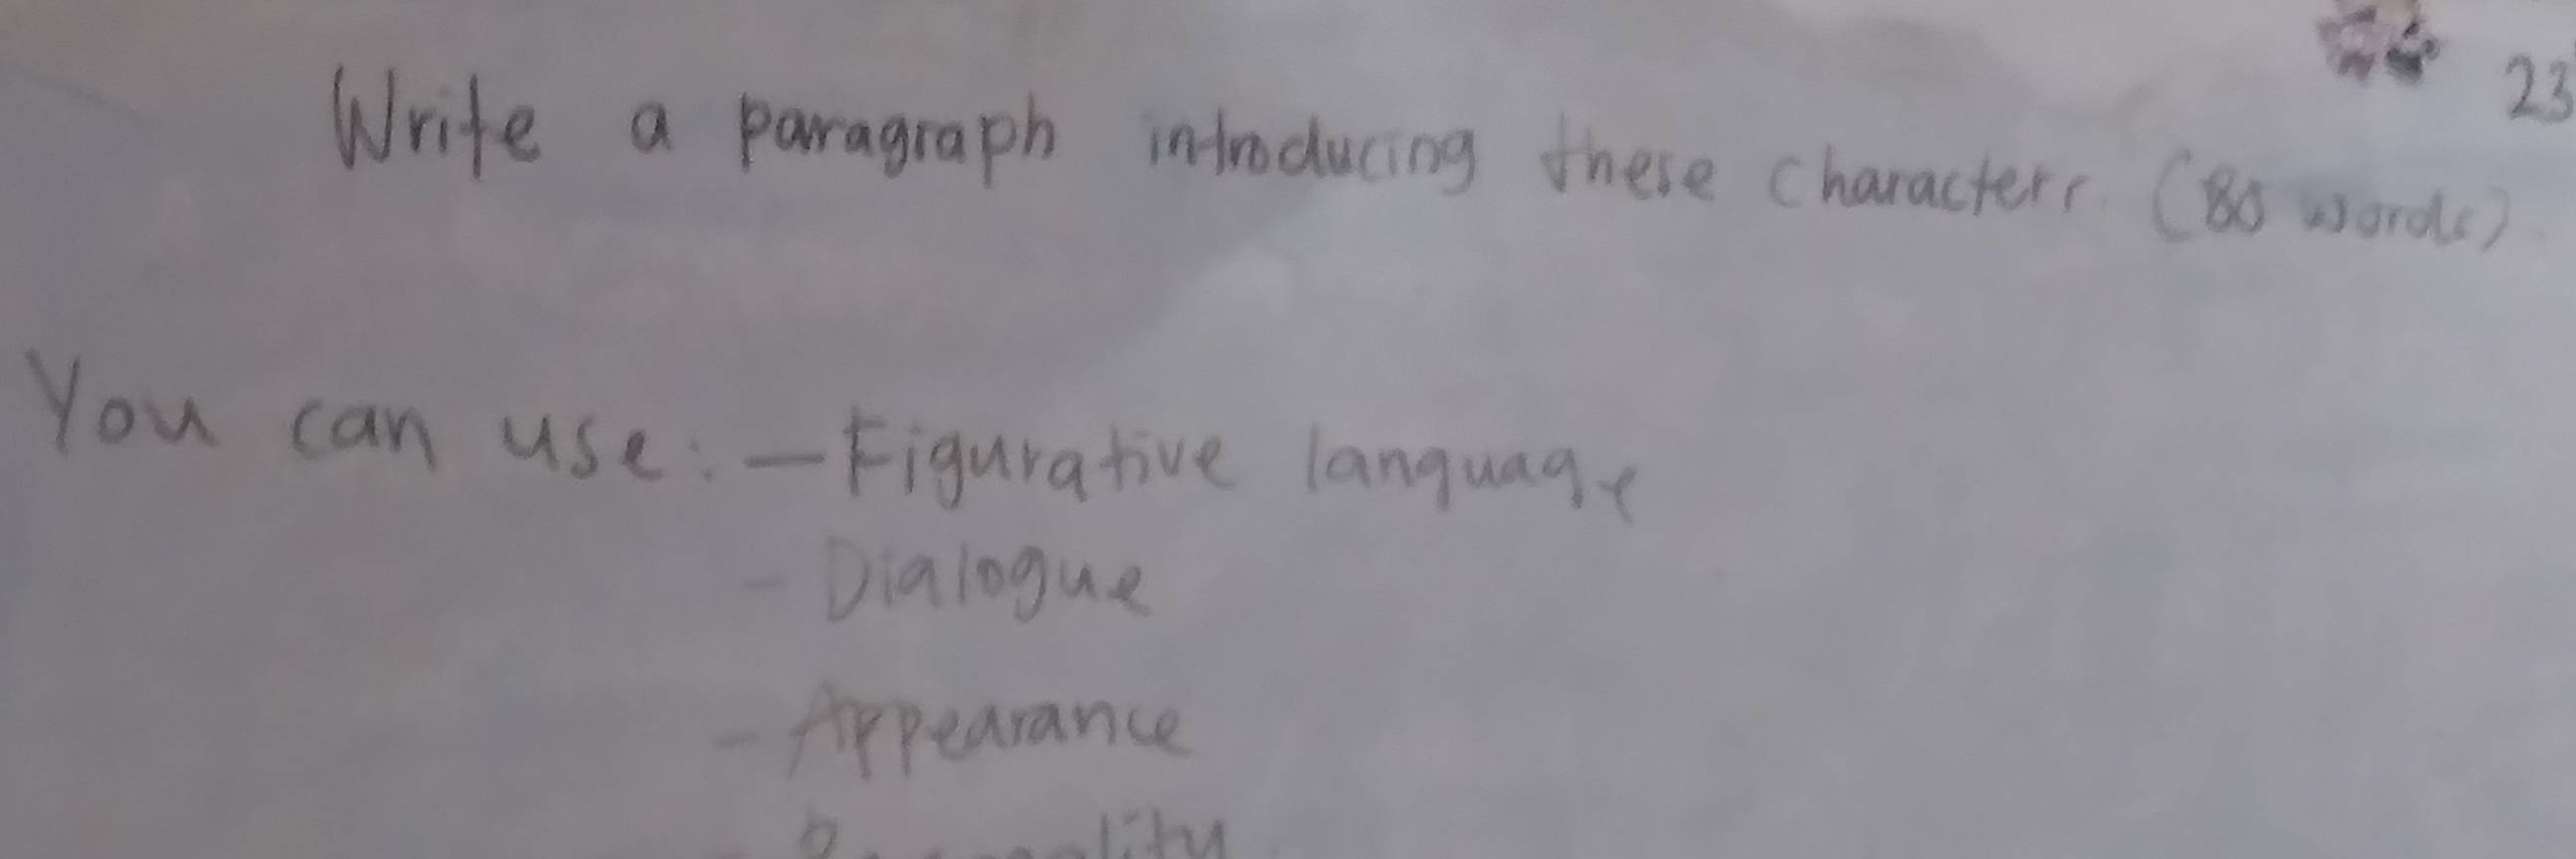 23
Write a paragraph introducing these characters. (80 words)
You can use: - Figurative language
- Dialogue
- Appearance
Personality